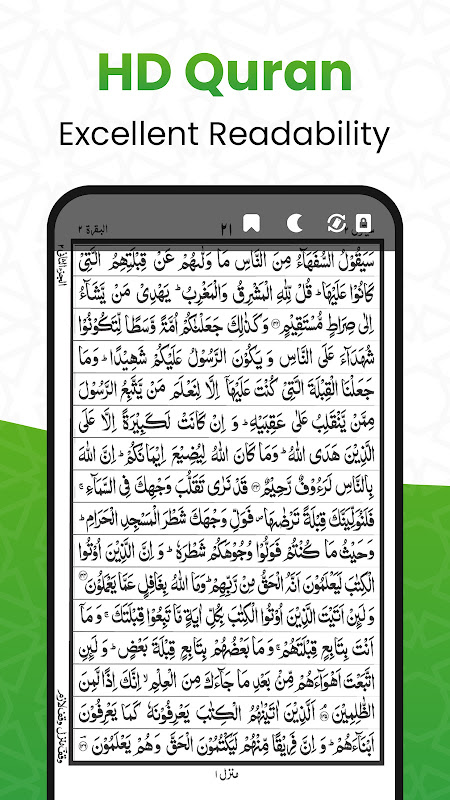 HD Quran
Excellent Readability
البقرة ٢
٢١
سَيَقُوْلُ السُّفَهَآءُ مِنَ النَّاسِ مَا وَلّٰىهُمْ عَنْ قِبْلَتِهِمُ الَّتِيْ
كَانُوْا عَلَيْهَا ؕ قُلْ لِّلّٰهِ الْمَشْرِقُ وَالْمَغْرِبُ ؕ يَهْدِيْ مَنْ يَّشَآءُ
اِلٰى صِرَاطٍ مُّسْتَقِيْمٍ ۝ وَكَذٰلِكَ جَعَلْنٰكُمْ اُمَّةً وَّسَطًا لِّتَكُوْنُوْا
شُهَدَآءَ عَلَى النَّاسِ وَ يَكُوْنَ الرَّسُوْلُ عَلَيْكُمْ شَهِيْدًا ؕ وَمَا
جَعَلْنَا الْقِبْلَةَ الَّتِيْ كُنْتَ عَلَيْهَاۤ اِلَّا لِنَعْلَمَ مَنْ يَّتَّبِعُ الرَّسُوْلَ
مِمَّنْ يَّنْقَلِبُ عَلٰى عَقِبَيْهِ ؕ وَ اِنْ كَانَتْ لَكَبِيْرَةً اِلَّا عَلَى
الَّذِيْنَ هَدَى اللّٰهُ ؕ وَمَا كَانَ اللّٰهُ لِيُضِيْعَ اِيْمَانَكُمْ ؕ اِنَّ اللّٰهَ
بِالنَّاسِ لَرَءُوْفٌ رَّحِيْمٌ ۝ قَدْ نَرٰى تَقَلُّبَ وَجْهِكَ فِي السَّمَآءِ ۚ
فَلَنُوَلِّيَنَّكَ قِبْلَةً تَرْضٰىهَا ۪ فَوَلِّ وَجْهَكَ شَطْرَ الْمَسْجِدِ الْحَرَامِ ؕ
وَحَيْثُ مَا كُنْتُمْ فَوَلُّوْا وُجُوْهَكُمْ شَطْرَهٗ ؕ وَ اِنَّ الَّذِيْنَ اُوْتُوا
الْكِتٰبَ لَيَعْلَمُوْنَ اَنَّهُ الْحَقُّ مِنْ رَّبِّهِمْ ؕ وَمَا اللّٰهُ بِغَافِلٍ عَمَّا يَعْمَلُوْنَ ۝
وَلَئِنْ اَتَيْتَ الَّذِيْنَ اُوْتُوا الْكِتٰبَ بِكُلِّ اٰيَةٍ مَّا تَبِعُوْا قِبْلَتَكَ ۚ وَمَاۤ
اَنْتَ بِتَابِعٍ قِبْلَتَهُمْ ۚ وَ مَا بَعْضُهُمْ بِتَابِعٍ قِبْلَةَ بَعْضٍ ؕ وَ لَئِنِ
اتَّبَعْتَ اَهْوَآءَهُمْ مِّنْۢ بَعْدِ مَا جَآءَكَ مِنَ الْعِلْمِ ۙ اِنَّكَ اِذًا لَّمِنَ
الظّٰلِمِيْنَ ۝ اَلَّذِيْنَ اٰتَيْنٰهُمُ الْكِتٰبَ يَعْرِفُوْنَهٗ كَمَا يَعْرِفُوْنَ
اَبْنَآءَهُمْ ؕ وَ اِنَّ فَرِيْقًا مِّنْهُمْ لَيَكْتُمُوْنَ الْحَقَّ وَهُمْ يَعْلَمُوْنَ ۝
منزل ١